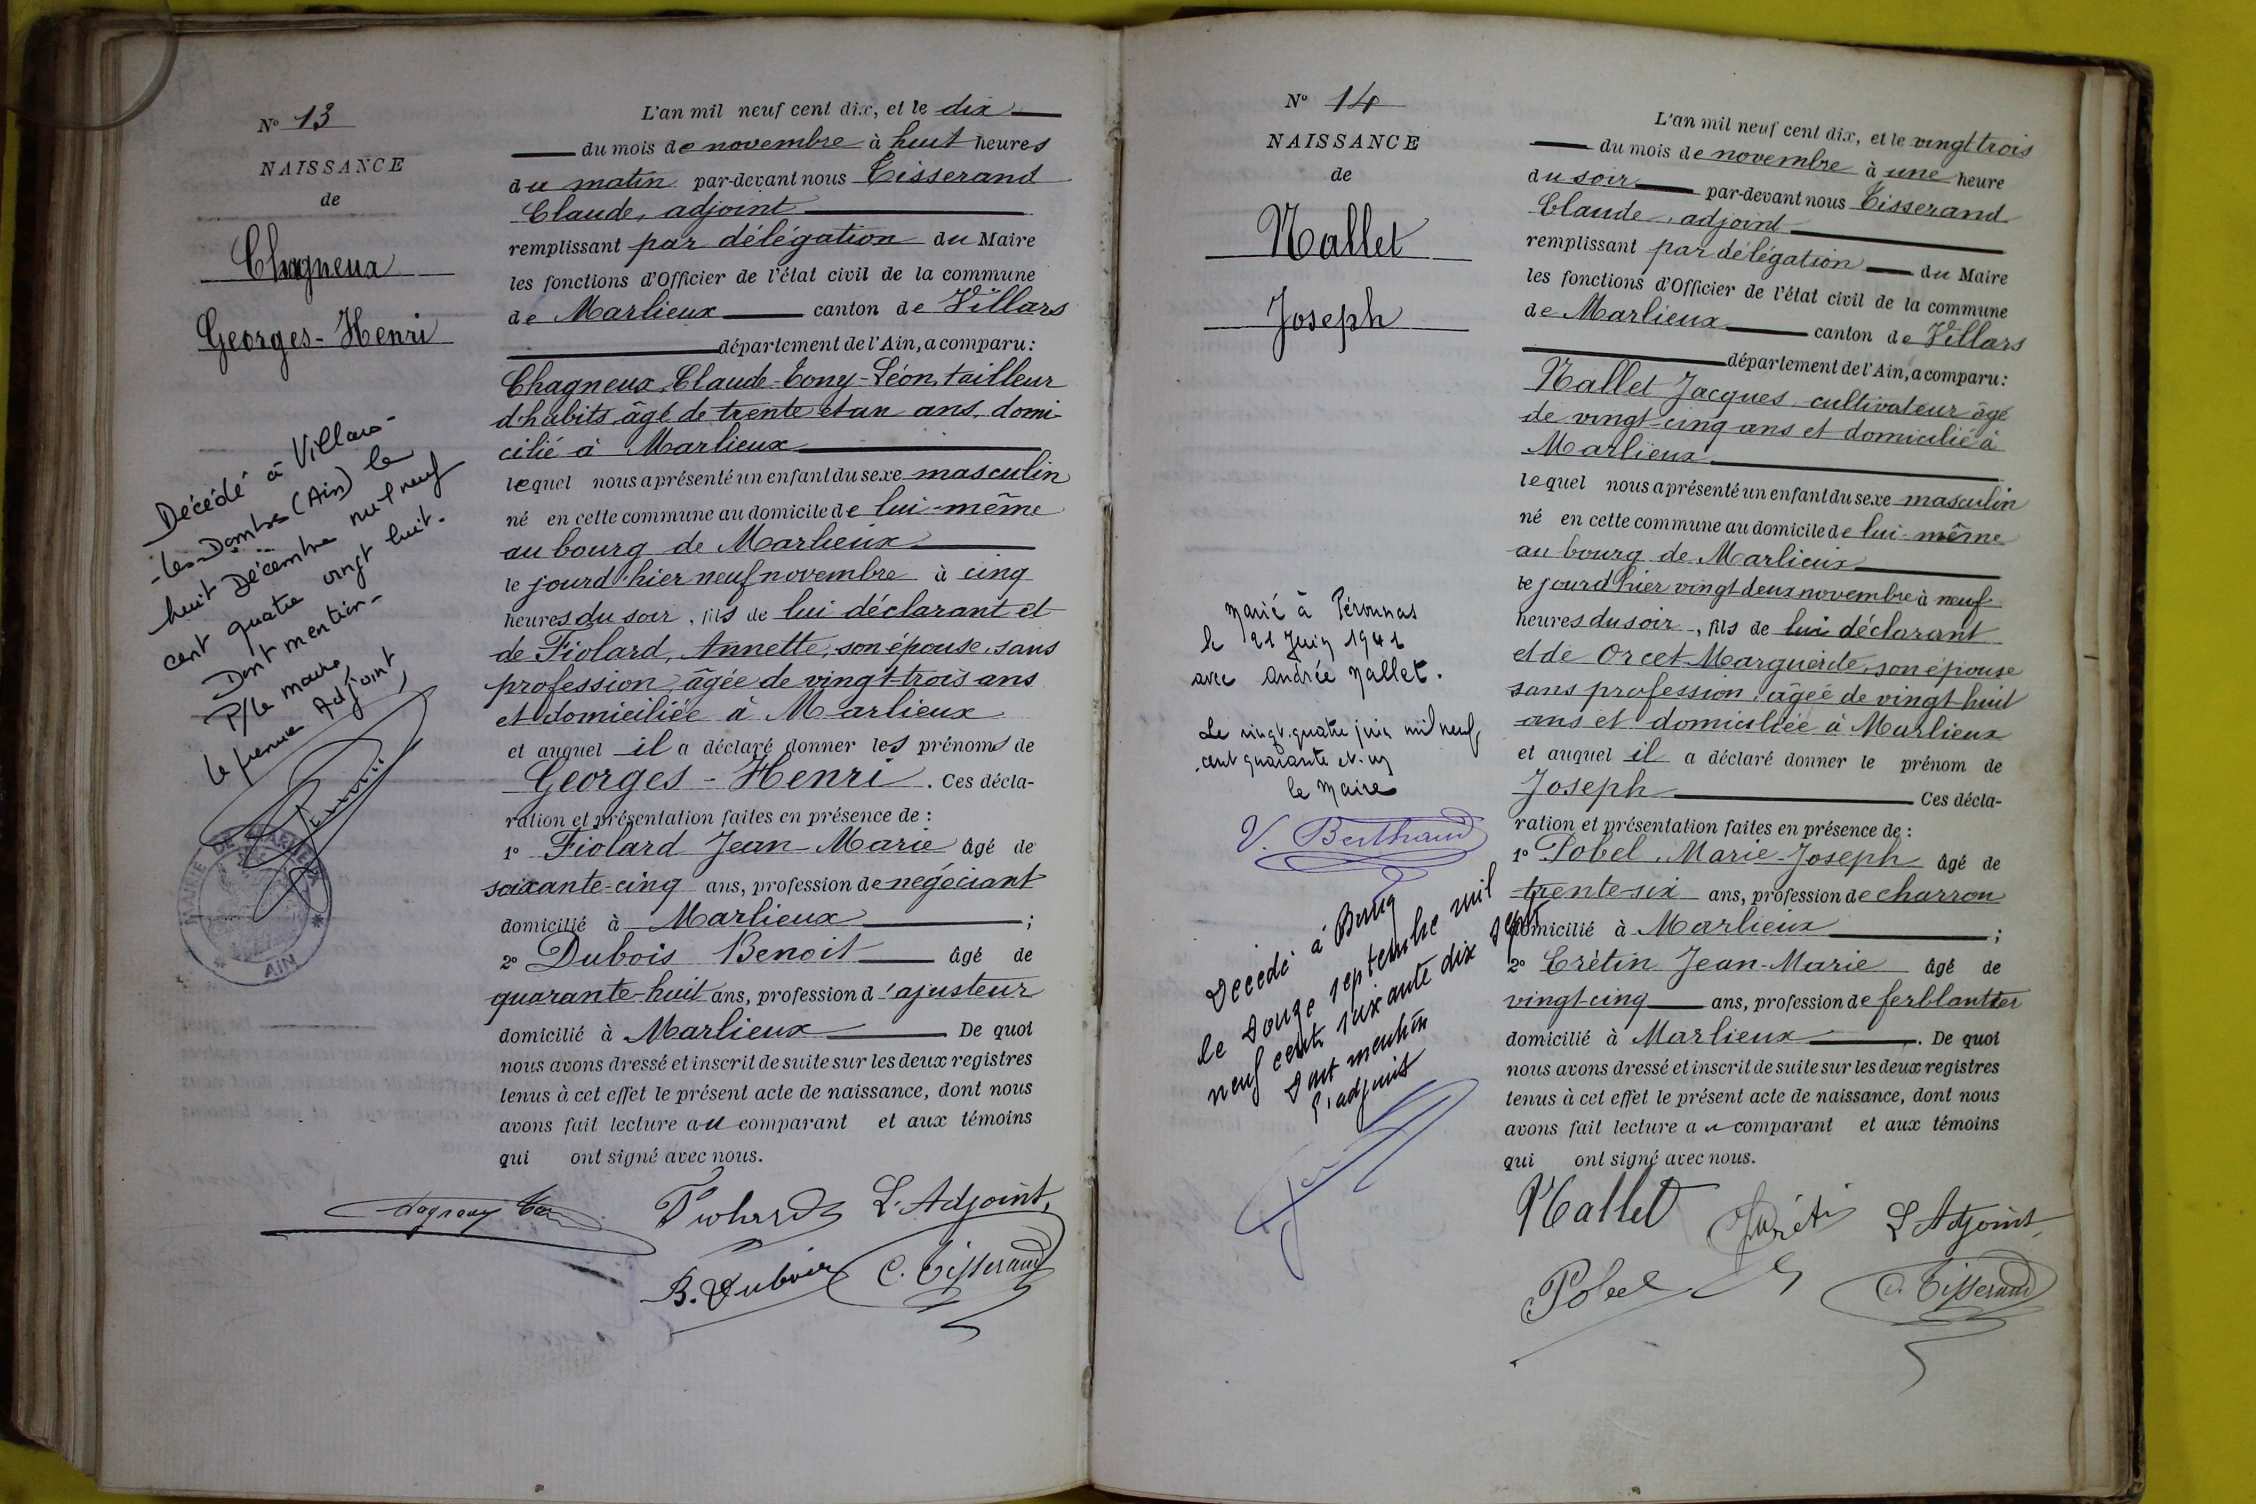 N° 13
NAISSANCE
de
Chagneux
Georges-Henri
Décédé à Villars-
-les-Dombes (Ain) le
huit Décembre mil neuf
cent quatre vingt huit.
Dont mention-
P/le maire,
le premier Adjoint,
MAIRIE DE MARLIEUX
AIN
L'an mil neuf cent dix, et le dix
du mois de novembre à huit heures
du matin par-devant nous Tisserand
Claude, adjoint
remplissant par délégation du Maire
les fonctions d'Officier de l'état civil de la commune
de Marlieux canton de Villars
département de l'Ain, a comparu:
Chagneux, Claude-Tony-Léon, tailleur
d'habits, âgé de trente et un ans, domi-
cilié à Marlieux
lequel nous a présenté un enfant du sexe masculin
né en cette commune au domicile de lui-même
au bourg de Marlieux
le jourd'hier neuf novembre à cinq
heures du soir, fils de lui déclarant et
de Fiolard, Annette, son épouse, sans
profession, âgée de vingt-trois ans
et domiciliée à Marlieux
et auquel il a déclaré donner les prénoms de
Georges-Henri. Ces décla-
ration et présentation faites en présence de :
1° Fiolard Jean-Marie âgé de
soixante-cinq ans, profession de négociant
domicilié à Marlieux ;
2° Dubois Benoit âgé de
quarante-huit ans, profession d'ajusteur
domicilié à Marlieux De quoi
nous avons dressé et inscrit de suite sur les deux registres
tenus à cet effet le présent acte de naissance, dont nous
avons fait lecture au comparant et aux témoins
qui ont signé avec nous.
Fiolard L'Adjoint,
B. Dubois C. Tisserand
N° 14
NAISSANCE
de
Nallet
Joseph
Marié à Péronnas
le 21 Juin 1941
avec Andrée Nallet.
Le vingt-quatre juin mil neuf
cent quarante et un
le Maire
V. Berthaud
Décédé à Bourg
le douze septembre mil
neuf cent soixante dix sept
Dont mention
l'adjoint
L'an mil neuf cent dix, et le vingt trois
du mois de novembre à une heure
du soir par-devant nous Tisserand
Claude, adjoint
remplissant par délégation du Maire
les fonctions d'Officier de l'état civil de la commune
de Marlieux canton de Villars
département de l'Ain, a comparu:
Nallet Jacques cultivateur âgé
de vingt-cinq ans et domicilié à
Marlieux
lequel nous a présenté un enfant du sexe masculin
né en cette commune au domicile de lui-même
au bourg de Marlieux
le jourd'hier vingt deux novembre à neuf
heures du soir, fils de lui déclarant
et de Orcet Marguerite, son épouse
sans profession, âgée de vingt huit
ans et domiciliée à Marlieux
et auquel il a déclaré donner le prénom de
Joseph Ces décla-
ration et présentation faites en présence de :
1° Pobel, Marie-Joseph âgé de
trente-six ans, profession de charron
domicilié à Marlieux ;
2° Crétin Jean-Marie âgé de
vingt-cinq ans, profession de ferblantier
domicilié à Marlieux. De quoi
nous avons dressé et inscrit de suite sur les deux registres
tenus à cet effet le présent acte de naissance, dont nous
avons fait lecture au comparant et aux témoins
qui ont signé avec nous.
Nallet Crétin L'Adjoint,
Pobel C. Tisserand